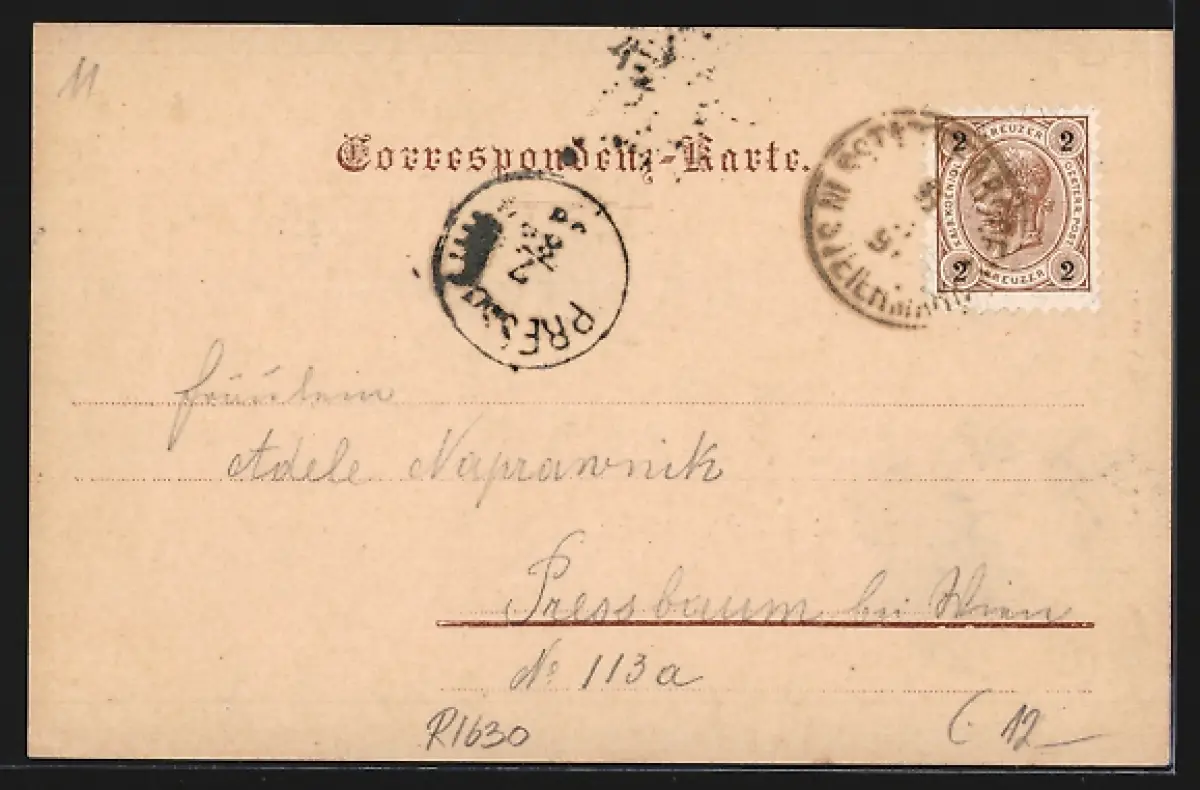 11
Correspondenz-Karte.
2 KREUZER 2
KAIS.KOENIGL. OESTERR.POST
2 KREUZER 2
STEIERMARK
PRESS
Fräulein
Adele Naprawnik
Pressbaum bei Wien
No 113a
R1630
12